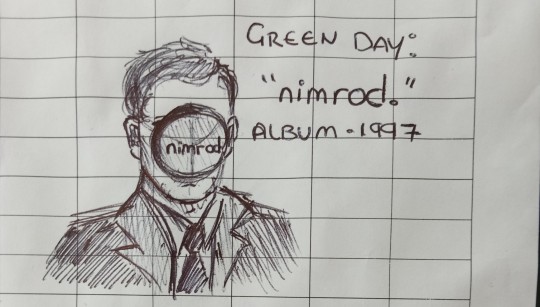 GREEN DAY:
"nimrod."
ALBUM - 1997
nimrod